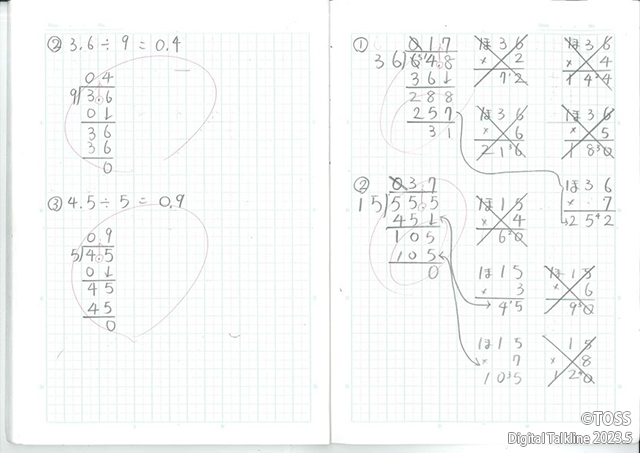 ② 3.6 ÷ 9 = 0.4
0.4
9)3.6
0↓
36
36
0
③ 4.5 ÷ 5 = 0.9
0.9
5)4.5
0↓
45
45
0
①
017
36)648
36↓
288
31
ほ36
× 2
72
ほ36
× 4
144
ほ36
× 6
216
ほ36
× 5
180
ほ36
× 7
252
②
037
15)555
45↓
105
105
0
ほ15
× 4
60
ほ15
× 3
45
ほ15
× 6
90
ほ15
× 7
105
15
× 8
120
©TOSS
Digital Talkline 2023.5